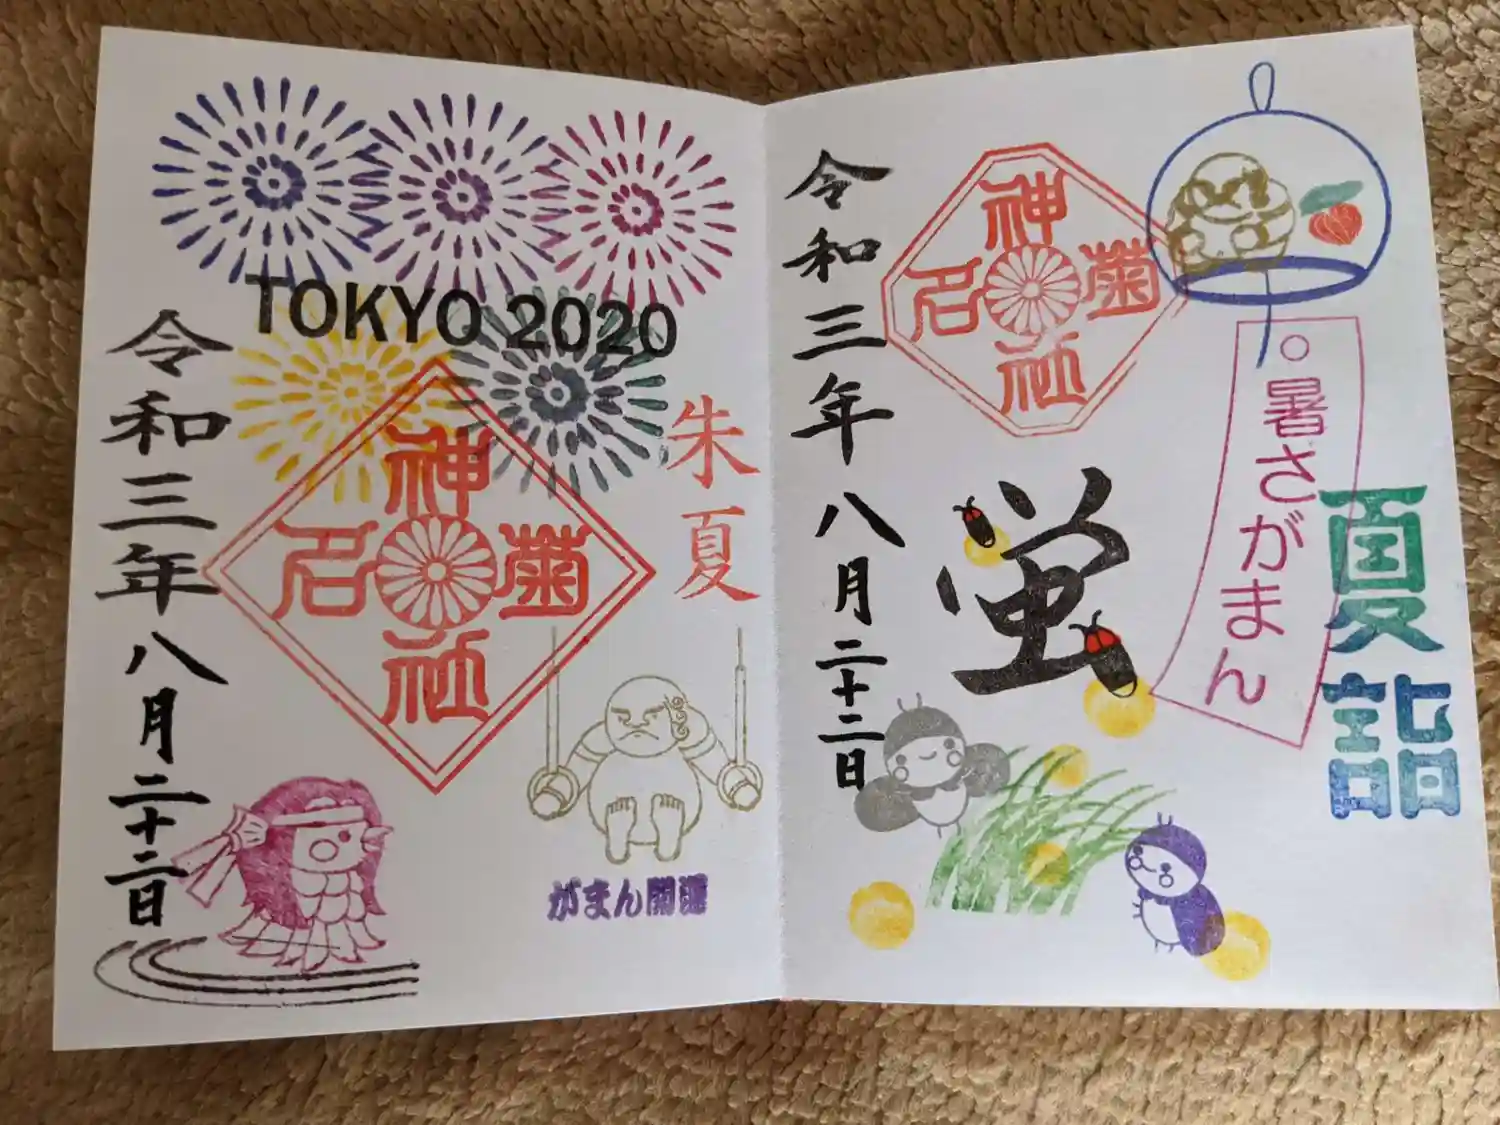 TOKYO 2020
朱夏
神社
菊名
令和三年八月二十二日
がまん開運
夏詣
暑さがまん
神社
菊名
蛍
令和三年八月二十二日